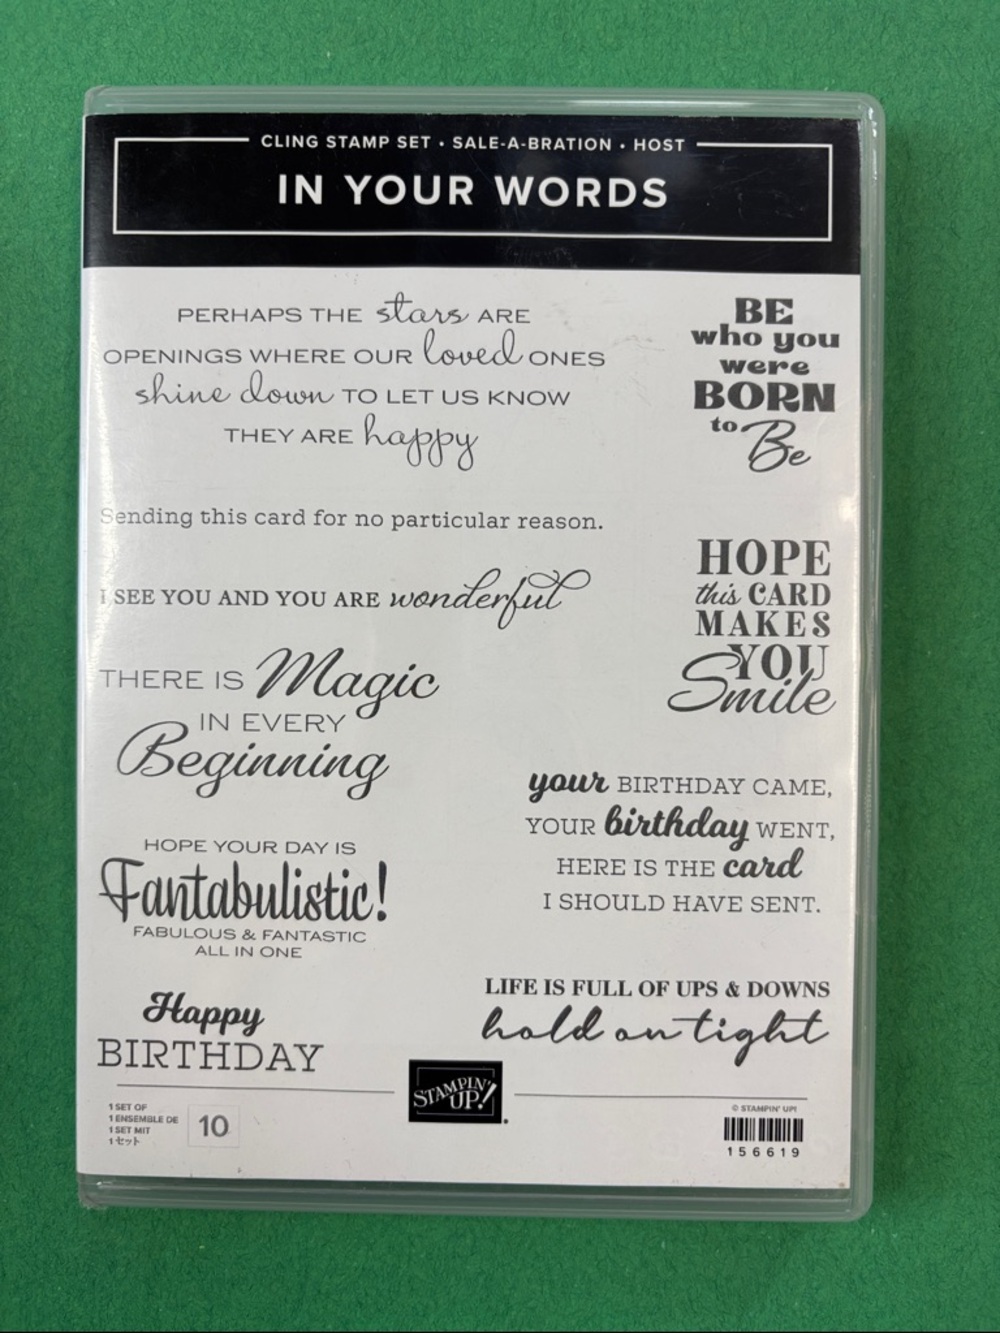 CLING STAMP SET • SALE-A-BRATION • HOST
IN YOUR WORDS
PERHAPS THE stars ARE
OPENINGS WHERE OUR loved ONES
shine down TO LET US KNOW
THEY ARE happy
BE
who you
were
BORN
to Be
Sending this card for no particular reason.
I SEE YOU AND YOU ARE wonderful
HOPE
this CARD
MAKES
YOU
Smile
THERE IS Magic
IN EVERY
Beginning
your BIRTHDAY CAME,
YOUR birthday WENT,
HERE IS THE card
I SHOULD HAVE SENT.
HOPE YOUR DAY IS
Fantabulistic!
FABULOUS & FANTASTIC
ALL IN ONE
LIFE IS FULL OF UPS & DOWNS
hold on tight
Happy
BIRTHDAY
STAMPIN' UP!
1 SET OF
1 ENSEMBLE DE
1 SET MIT
1 セット
10
© STAMPIN' UP!
156619